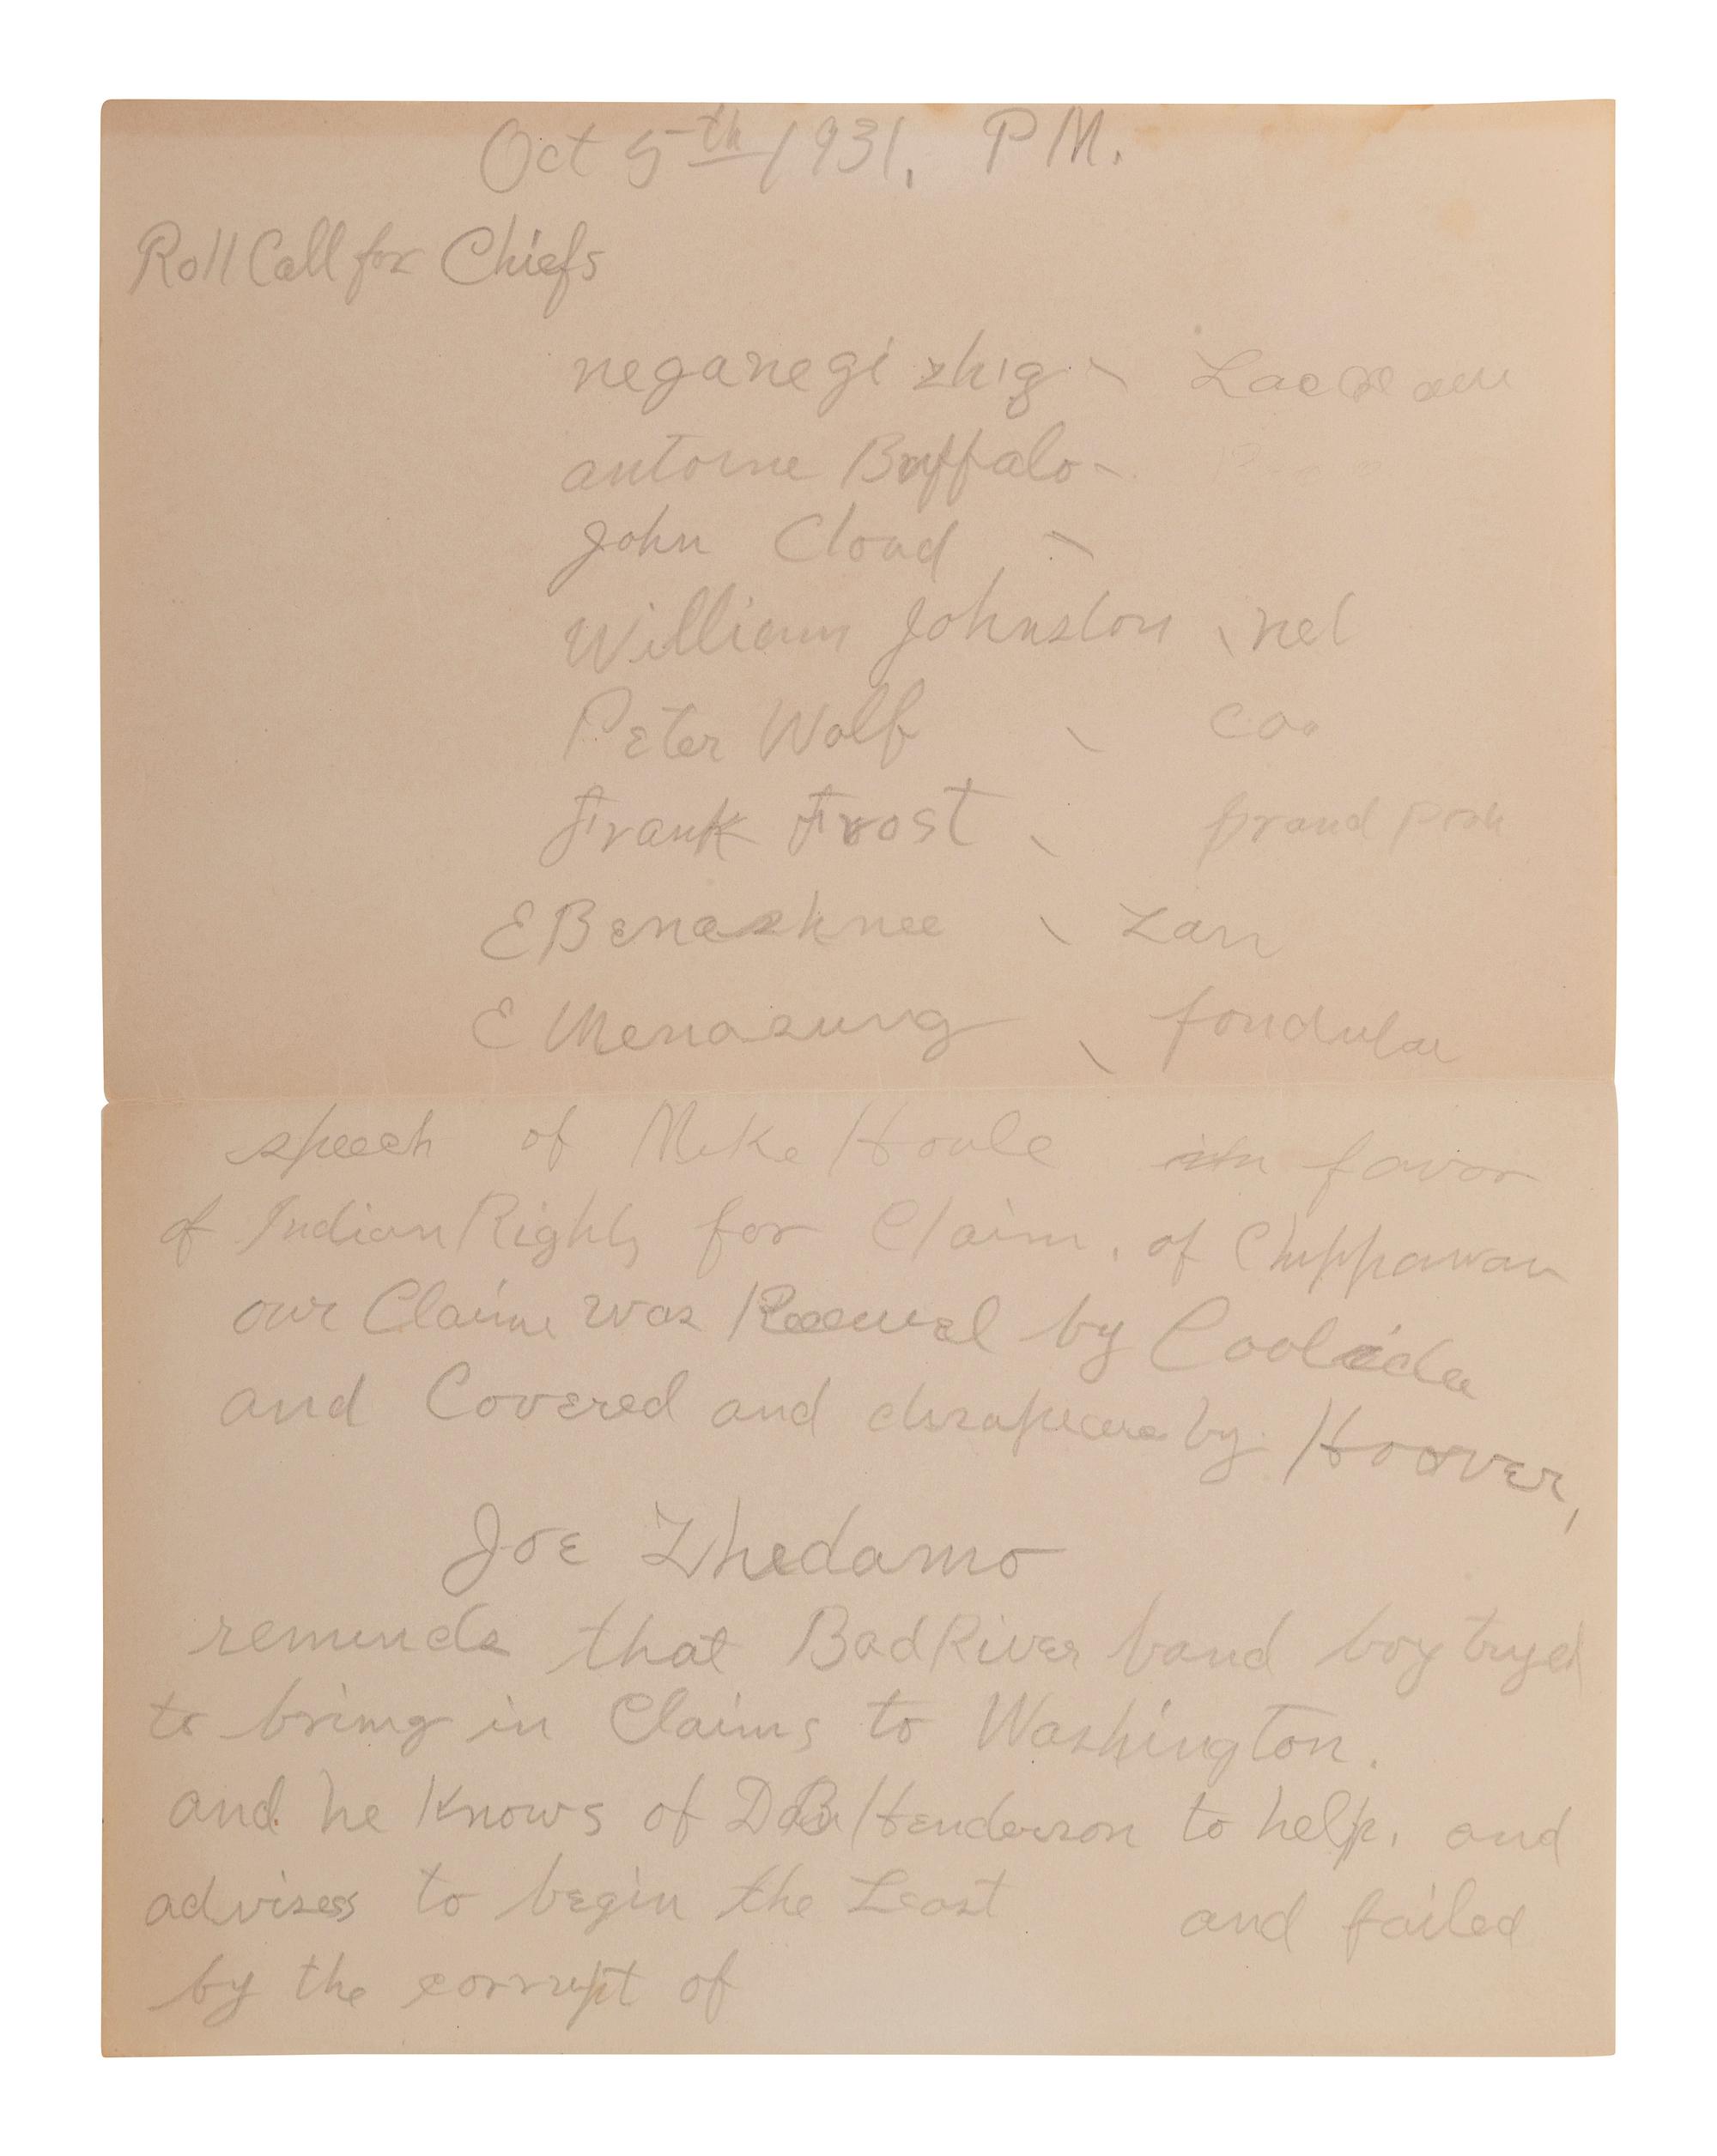 Oct 5th 1931, P M.
Roll Call for Chiefs
neganegizhig
antoine Buffalo -
John Cloud
William Johnston nel
Peter Wolf
Frank Frost
E Benashnee
E Menasung
speech of Mike Houle in favor
of Indian Rights for Claim, of
our Claim was by
and Covered and by Hoover,
Joe Zhedamo
reminds that Bad River band boy tryed
to bring in Claims to Washington.
and he Knows of Henderson to help, and
advises to begin the Least and failed
by the corrupt of